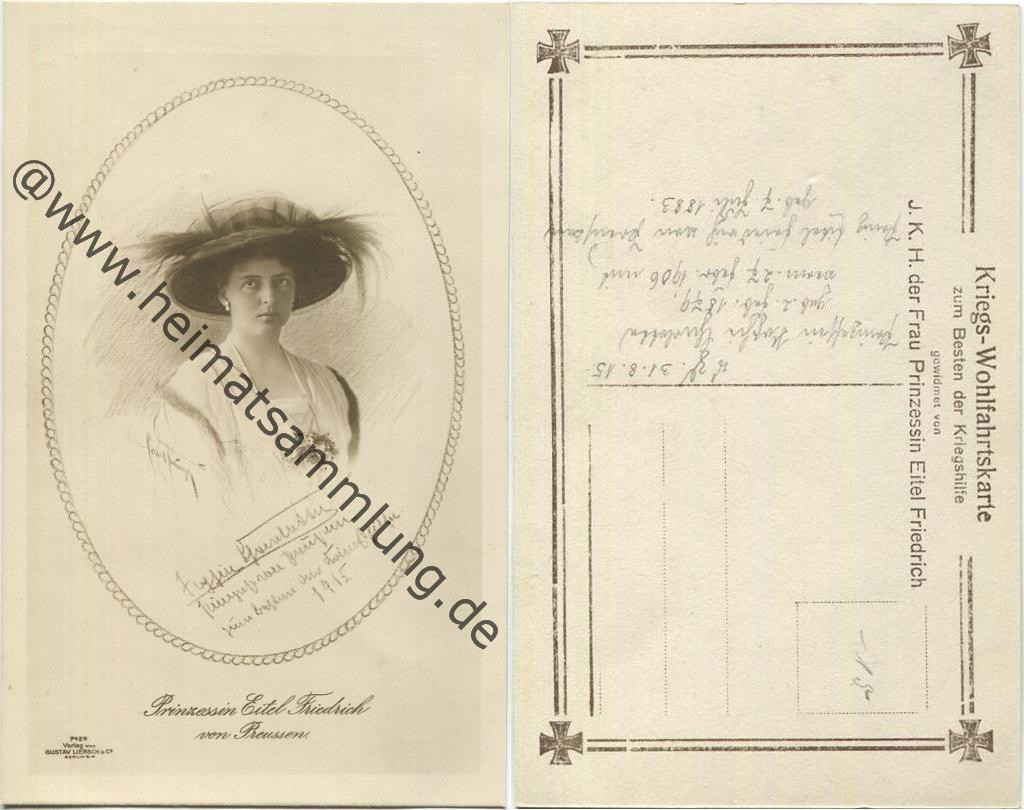 @www.heimatsammlung.de
Sophie Charlotte
1915
Prinzessin Eitel Friedrich
von Preussen
7429
Verlag von
GUSTAV LIERSCH & Co
BERLIN S.W.
Kriegs-Wohlfahrtskarte
zum Besten der Kriegshilfe
gewidmet von
J. K. H. der Frau Prinzessin Eitel Friedrich
31.8.15.
Prinzessin Sophie Charlotte
geb. 2. Febr. 1879,
verm. 27 Febr. 1906 mit
Prinz Eitel Friedrich von Preussen
geb. 7. Juli 1883.
-15